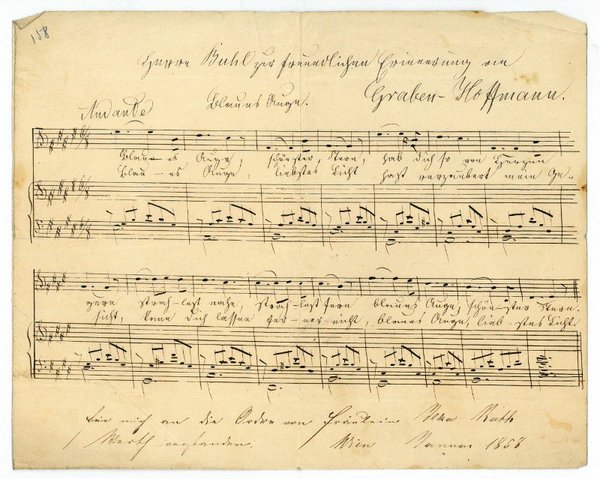 158
Herrn Buhl zur freundlichen Erinnerung von
Graben-Hoffmann.
Andante
Blaues Auge.
Blau-es Auge, schönster Stern, hab dich so von Herzen
Blau-es Auge, liebstes Licht hast verzaubert mein Ge-
gern strah-lest nahe, strah-lest fern blaues Auge, schön-ster Stern.
sicht, kann dich lassen nicht, blaues Auge, lieb-stes Licht.
für mich an die Ordre von Fräulein
Werth verstanden. Wien Januar